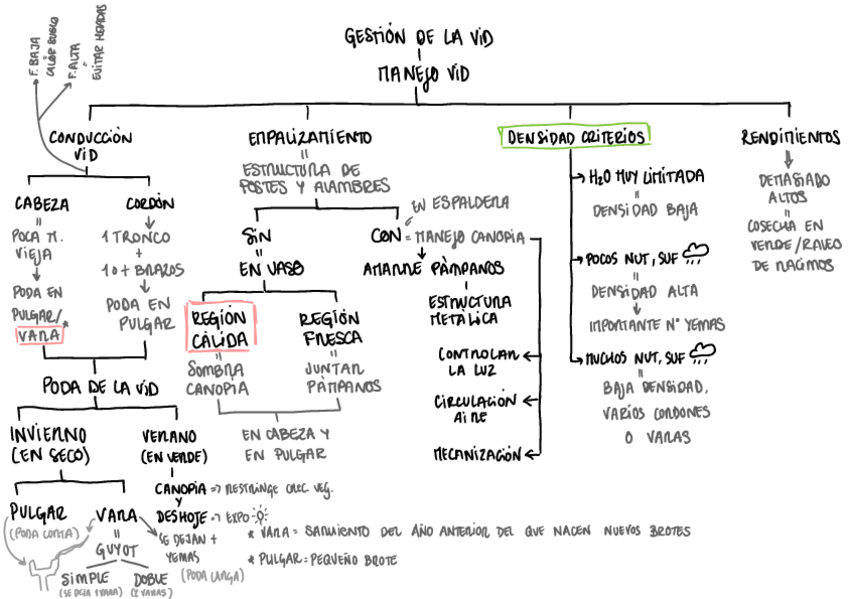 GESTIÓN DE LA VID
MANEJO VID
F. BAJA
CALOR SUELO
F. ALTA
=
EVITAR HELADAS
CONDUCCIÓN
VID
EMPALIZAMIENTO
=
ESTRUCTURA DE
POSTES Y ALAMBRES
DENSIDAD CRITERIOS
RENDIMIENTOS
CABEZA
=
POCA M.
VIEJA
PODA EN
PULGAR/
VARA *
CORDÓN
1 TRONCO
+
1 O + BRAZOS
PODA EN
PULGAR
SIN
EN VASO
REGIÓN
CÁLIDA
=
SOMBRA
CANOPIA
REGIÓN
FRESCA
=
JUNTAR
PÁMPANOS
EN CABEZA Y
EN PULGAR
EN ESPALDERA
CON = MANEJO CANOPIA
AMARRE PÁMPANOS
ESTRUCTURA
METÁLICA
CONTROLAR
LA LUZ
CIRCULACIÓN
AIRE
MECANIZACIÓN
→ H2O MUY LIMITADA
=
DENSIDAD BAJA
→ POCOS NUT, SUF
=
DENSIDAD ALTA
IMPORTANTE Nº YEMAS
→ MUCHOS NUT, SUF
=
BAJA DENSIDAD,
VARIOS CORDONES
O VARAS
DEMASIADO
ALTOS
COSECHA EN
VERDE/RALEO
DE RACIMOS
PODA DE LA VID
INVIERNO
(EN SECO)
VERANO
(EN VERDE)
CANOPIA => RESTRINGE CREC VEG.
Y
DESHOJE -> EXPO
PULGAR
(PODA CORTA)
VARA
=
GUYOT
SE DEJAN +
YEMAS
(PODA LARGA)
SIMPLE
(SE DEJA 1 VARA)
DOBLE
(2 VARAS)
* VARA = SARMIENTO DEL AÑO ANTERIOR DEL QUE NACEN NUEVOS BROTES
* PULGAR = PEQUEÑO BROTE